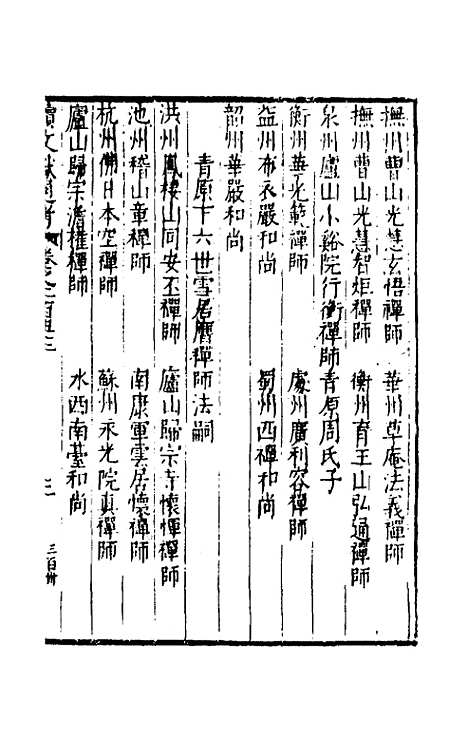 撫州曹山光慧玄悟禪師 華州草庵法義禪師
撫州曹山光慧智炬禪師 衡州育王山弘通禪師
泉州廬山小谿院行衝禪師青原周氏子
衡州華光範禪師 處州廣利容禪師
益州布衣嚴和尚 蜀州西禪和尚
韶州華嚴和尚
青原下六世雲居膺禪師法嗣
洪州鳳棲山同安丕禪師 廬山歸宗寺懷惲禪師
池州稽山章禪師 南康軍雲居懷禪師
杭州佛日本空禪師 蘇州永光院真禪師
廬山歸宗澹權禪師 水西南臺和尚
續文獻通考 卷之二百五三 三 三百卅